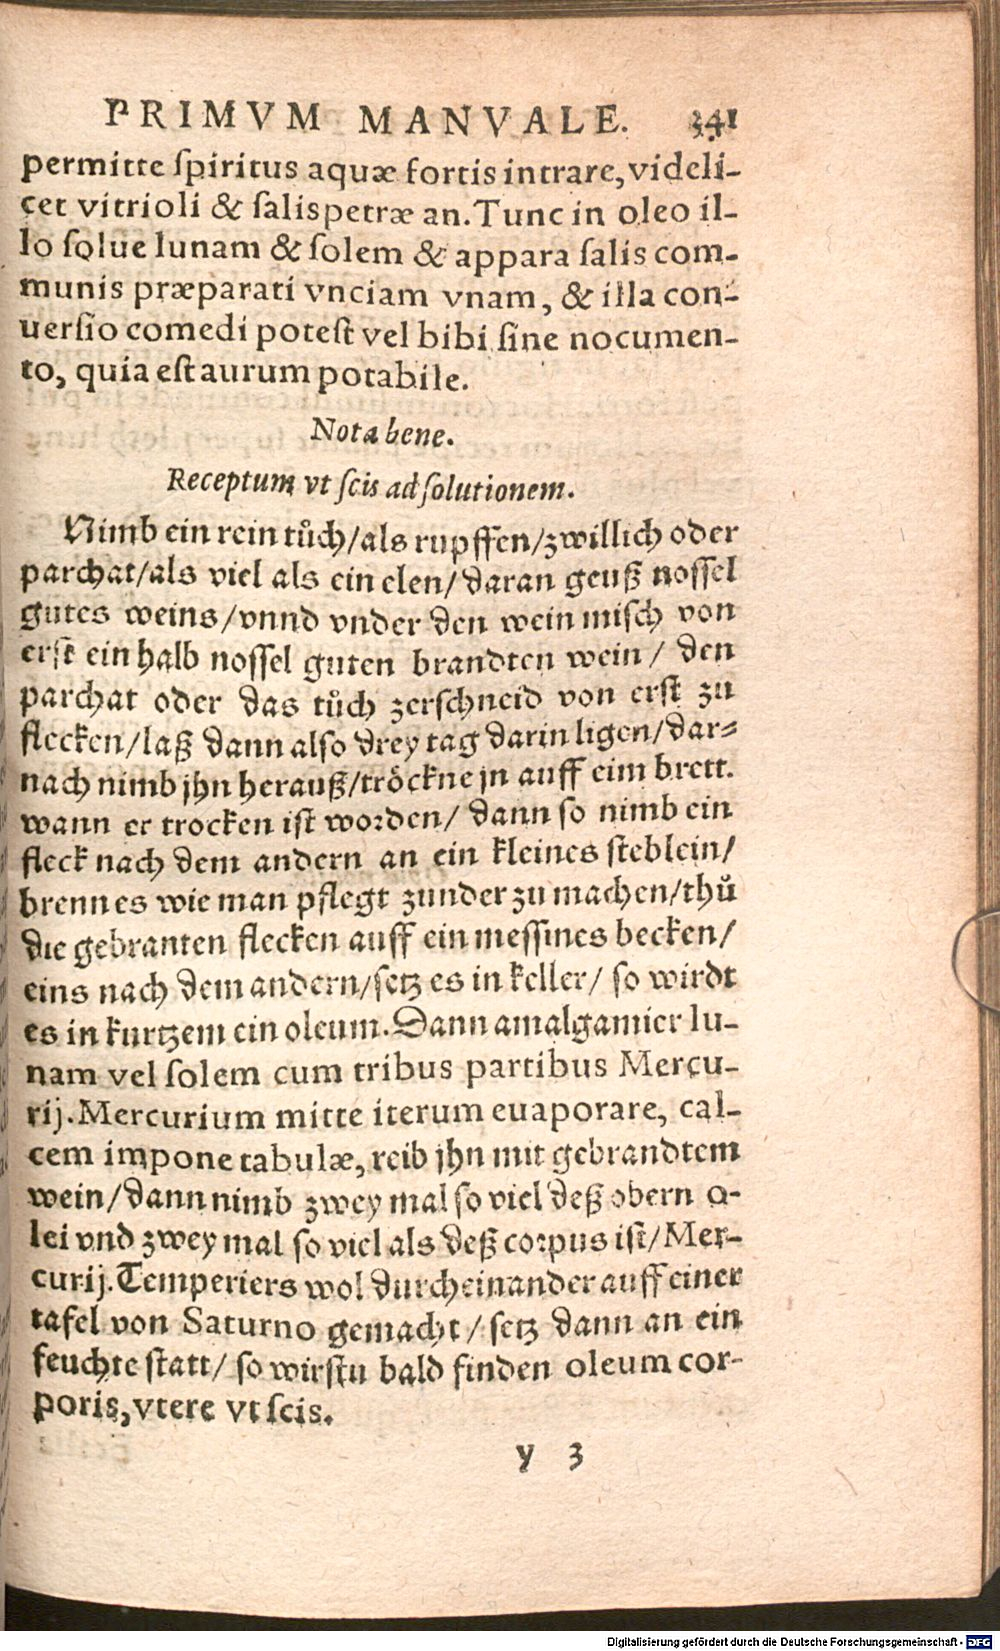 PRIMVM MANVALE. 341
permitte ſpiritus aquæ fortis intrare, videli-
cet vitrioli & ſalispetræ an. Tunc in oleo il-
lo ſolue lunam & ſolem & appara ſalis com-
munis præparati vnciam vnam, & illa con-
uerſio comedi poteſt vel bibi ſine nocumen-
to, quia eſt aurum potabile.
Nota bene.
Receptum vt ſcis ad ſolutionem.
Nimb ein rein tůch/als rupffen/zwillich oder
parchat/als viel als ein elen/daran geuß nossel
gutes weins/vnnd vnder den wein misch von
erst ein halb nossel guten brandten wein/ den
parchat oder das tůch zerschneid von erst zu
flecken/laß dann also drey tag darin ligen/dar-
nach nimb jhn herauß/tröckne jn auff eim brett.
wann er trocken ist worden/ dann so nimb ein
fleck nach dem andern an ein kleines steblein/
brenn es wie man pflegt zunder zu machen/thů
die gebranten flecken auff ein messines becken/
eins nach dem andern/setz es in keller/ so wirdt
es in kurtzem ein oleum. Dann amalgamier lu-
nam vel ſolem cum tribus partibus Mercu-
rij. Mercurium mitte iterum euaporare, cal-
cem impone tabulæ, reib jhn mit gebrandtem
wein/dann nimb zwey mal so viel deß obern o-
lei vnd zwey mal so viel als deß corpus ist/Mer-
curij. Temperiers wol durcheinander auff einer
tafel von Saturno gemacht/ setz dann an ein
feuchte statt/ so wirstu bald finden oleum cor-
poris, vtere vt ſcis.
y 3
Digitalisierung gefördert durch die Deutsche Forschungsgemeinschaft - DFG